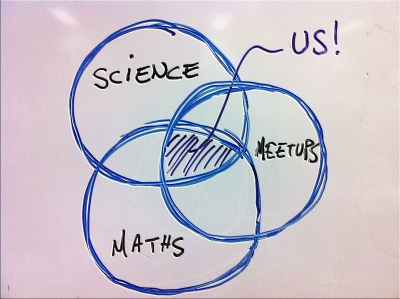 US!
SCiENCE
MEETUPS
MATHS